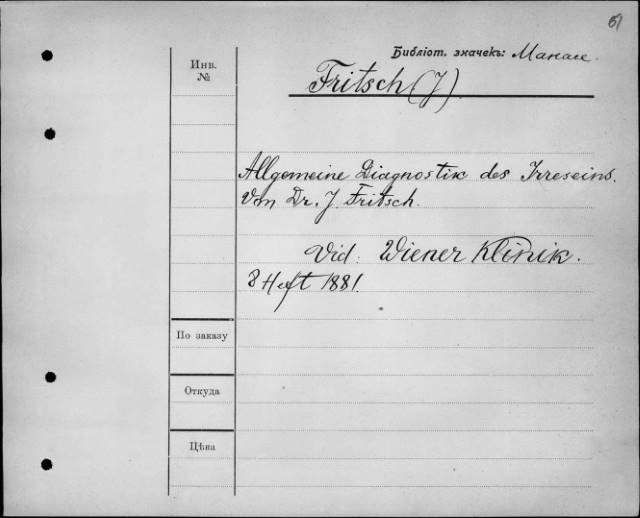 61
Библіот. значекъ: Манас.
Инв.
№
Fritsch (J)
Allgemeine Diagnostik des Irreseins.
Von Dr. J. Fritsch.
Vid: Wiener Klinik.
8 Heft 1881.
По заказу
Откуда
Цѣна